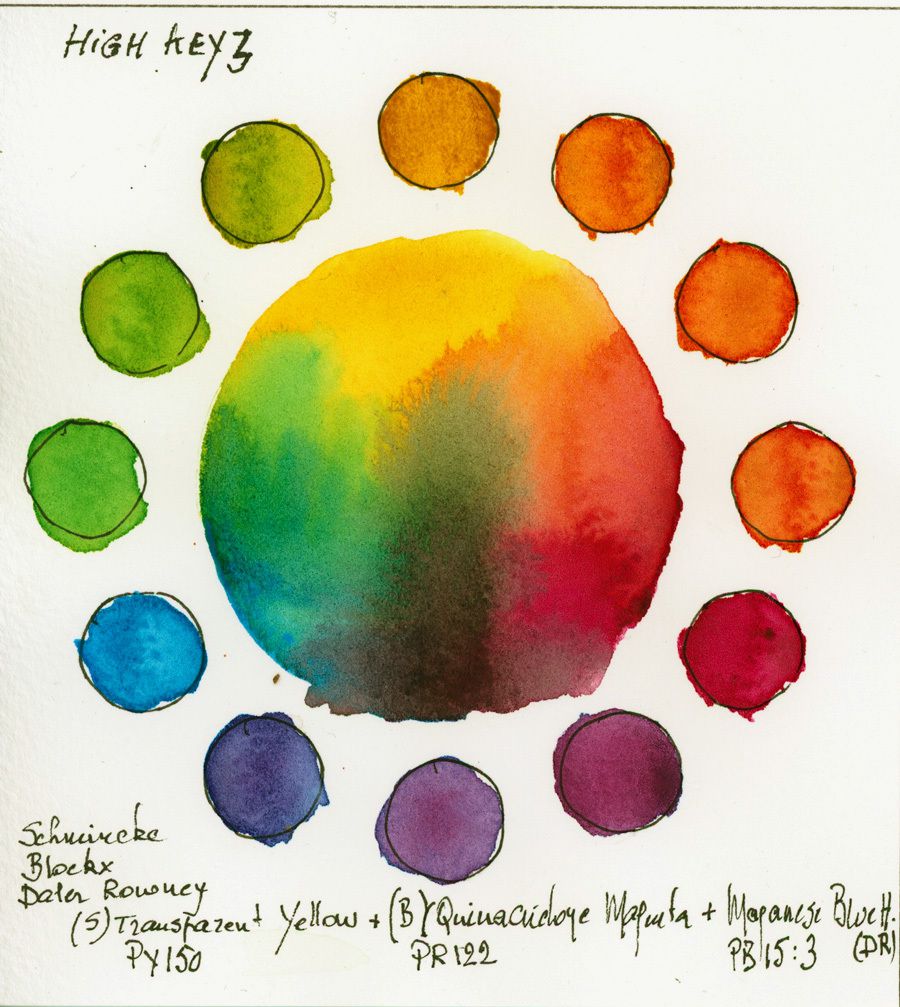 HIGH KEY 3
Schmincke
Blockx
Daler Rowney
(S) Transparent Yellow + (B) Quinacridone Magenta + Manganese Blue H.
PY150 PR122 PB15:3 (DR)